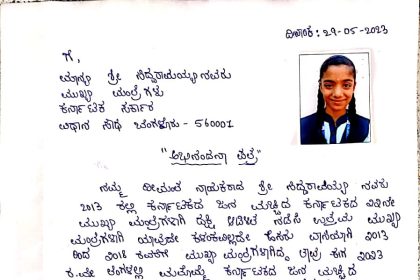 ದಿನಾಂಕ: 29-05-2023
ಗೆ,
ಮಾನ್ಯ ಶ್ರೀ ಸಿದ್ದರಾಮಯ್ಯನವರು
ಮುಖ್ಯ ಮಂತ್ರಿಗಳು
ಕರ್ನಾಟಕ ಸರ್ಕಾರ
ವಿಧಾನ ಸೌಧ ಬೆಂಗಳೂರು - 560001
"ಅಭಿನಂದನಾ ಪತ್ರ"
ನಮ್ಮ ಧೀಮಂತ ನಾಯಕರಾದ ಶ್ರೀ ಸಿದ್ದರಾಮಯ್ಯ ನವರು
2013 ರಲ್ಲಿ ಕರ್ನಾಟಕದ ಜನ ಮೆಚ್ಚಿದ ಕರ್ನಾಟಕದ
ಮುಖ್ಯ ಮಂತ್ರಿಗಳಾಗಿ ದಕ್ಷ ಆಡಳಿತ ನಡೆಸಿ ಉತ್ತಮ ಮುಖ್ಯ
ಮಂತ್ರಿಗಳಾಗಿ ಯಾವುದೇ ಕಳಂಕವಿಲ್ಲದೇ 2013
ರಿಂದ 2018 ರವರೆಗೆ ಮುಖ್ಯ ಮಂತ್ರಿಗಳಾಗಿದ್ದ ಈಗ 2023
ಮತ್ತೊಮ್ಮೆ ಕರ್ನಾಟಕದ ಜನ ಮೆಚ್ಚಿದ